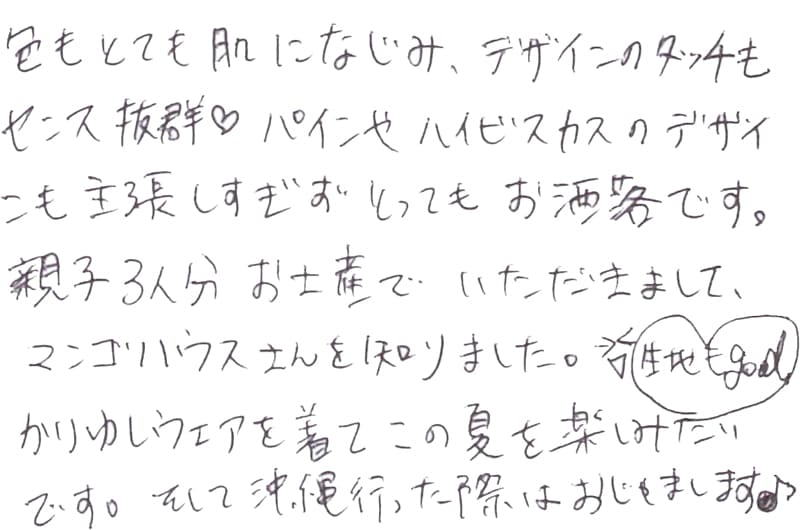 色もとても肌になじみ、デザインのタッチも
センス抜群♡ パインやハイビスカスのデザイ
ンも主張しすぎずとってもお洒落です。
親子3人分お土産でいただきまして、
マンゴハウスさんを知りました。 生地もgood
かりゆしウェアを着てこの夏を楽しみたい
です。そして沖縄行った際はおじゃまします♪